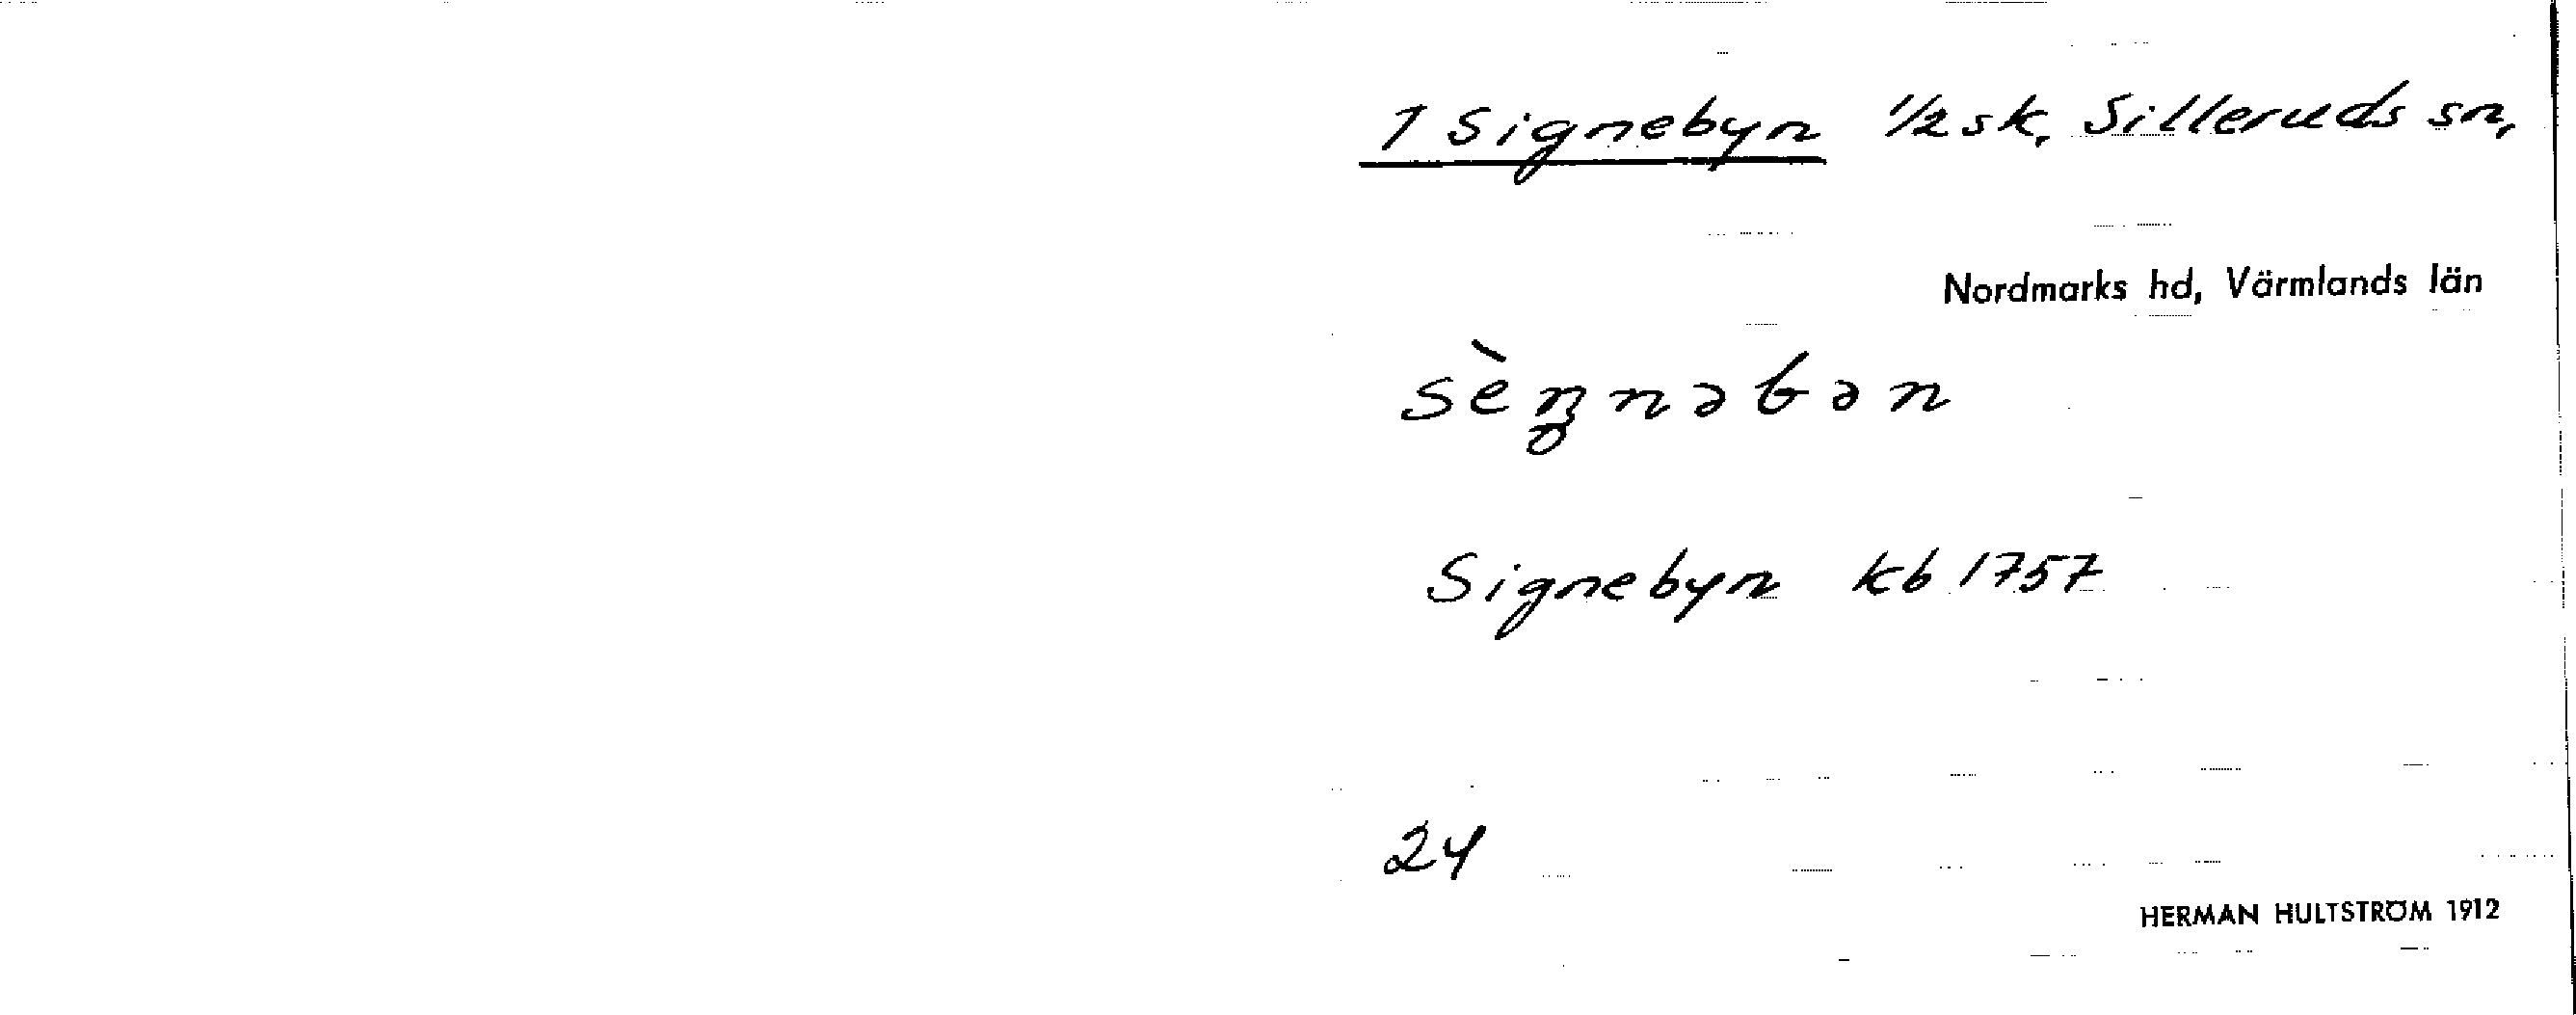 1 Signebyn 1/2 sk, Silleruds sn,
Nordmarks hd, Värmlands län
sèŋnəbən
Signebyn kb 1757
24
HERMAN HULTSTRÖM 1912